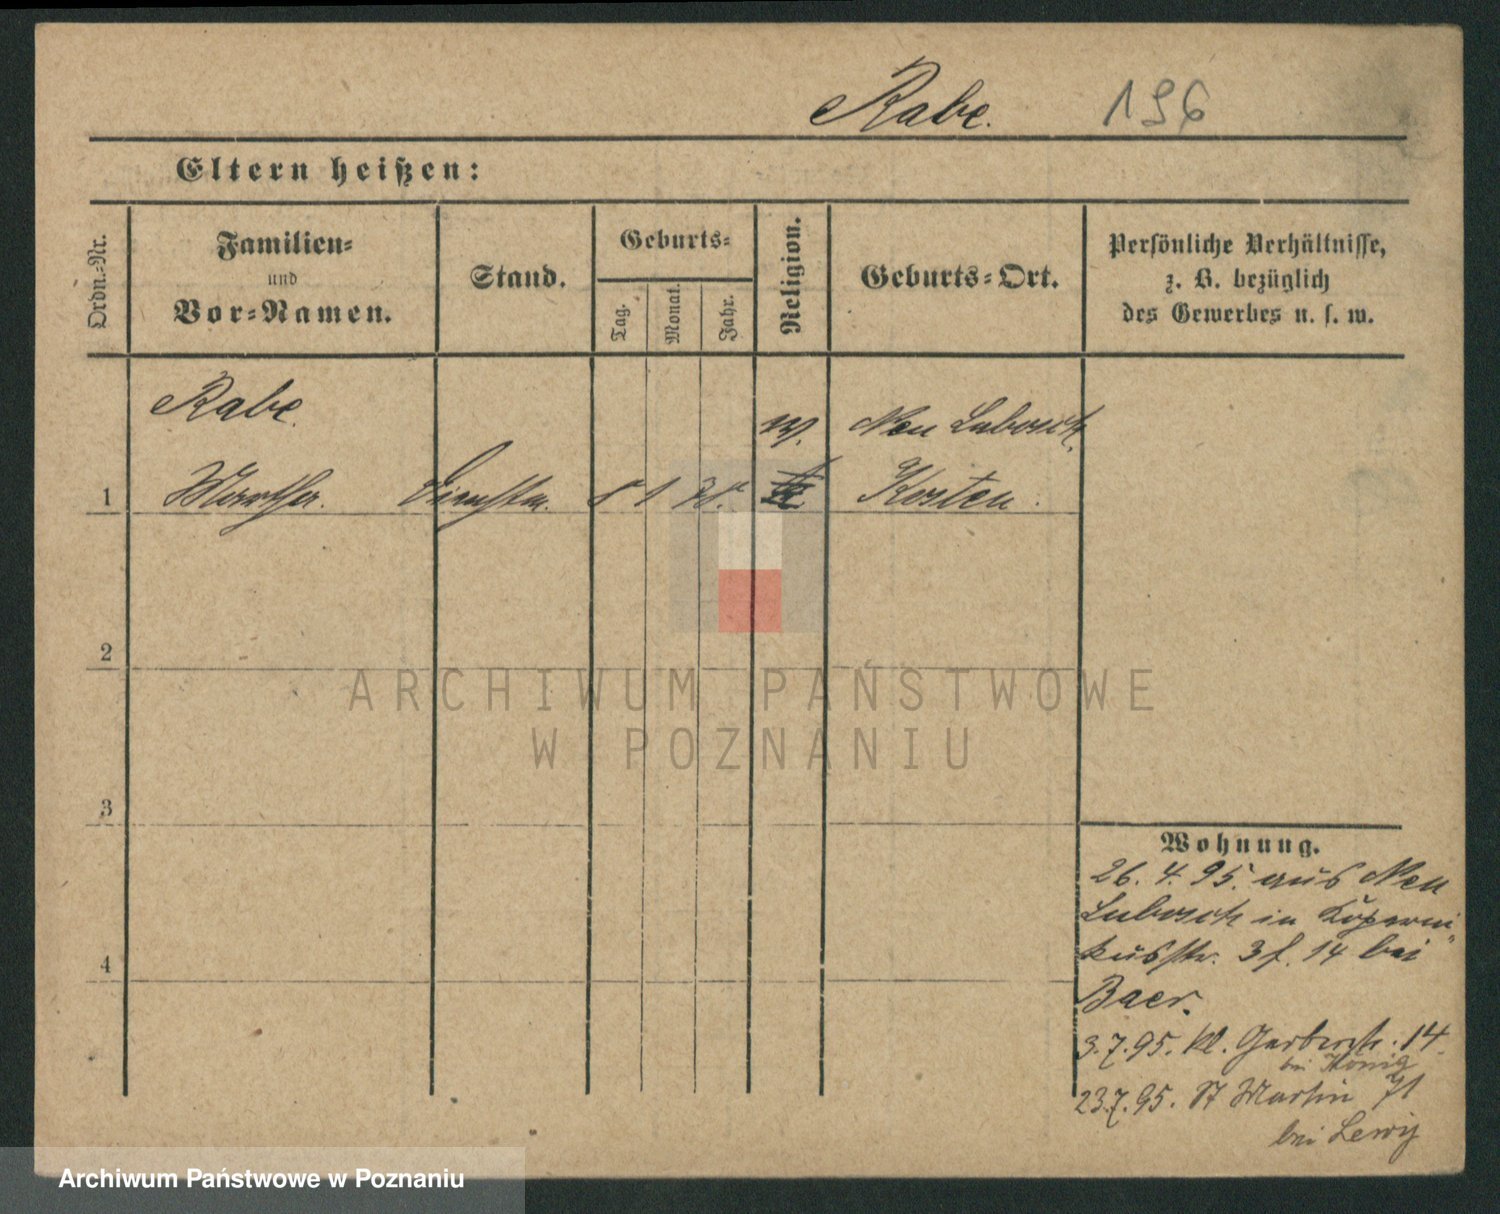 Rabe. 196
Eltern heißen:
Ordn.-Nr.
Familien-
und
Vor-Namen.
Stand.
Geburts-
Tag.
Monat.
Jahr.
Religion.
Geburts-Ort.
Persönliche Verhältnisse,
z. B. bezüglich
des Gewerbes u. s. w.
Rabe.
Neu Lubosch,
1 Martha. Dienstm. 8 1 Kosten.
2
ARCHIWUM PAŃSTWOWE
W POZNANIU
3
Wohnung.
26. 4. 95. aus Neu
Lubosch in Koperni
kusstr. 3 14 bei
4
Baer.
3.7.95. Kl. Gerberstr. 14.
bei König
23.7.95. St Martin 71
bei Lewy
Archiwum Państwowe w Poznaniu